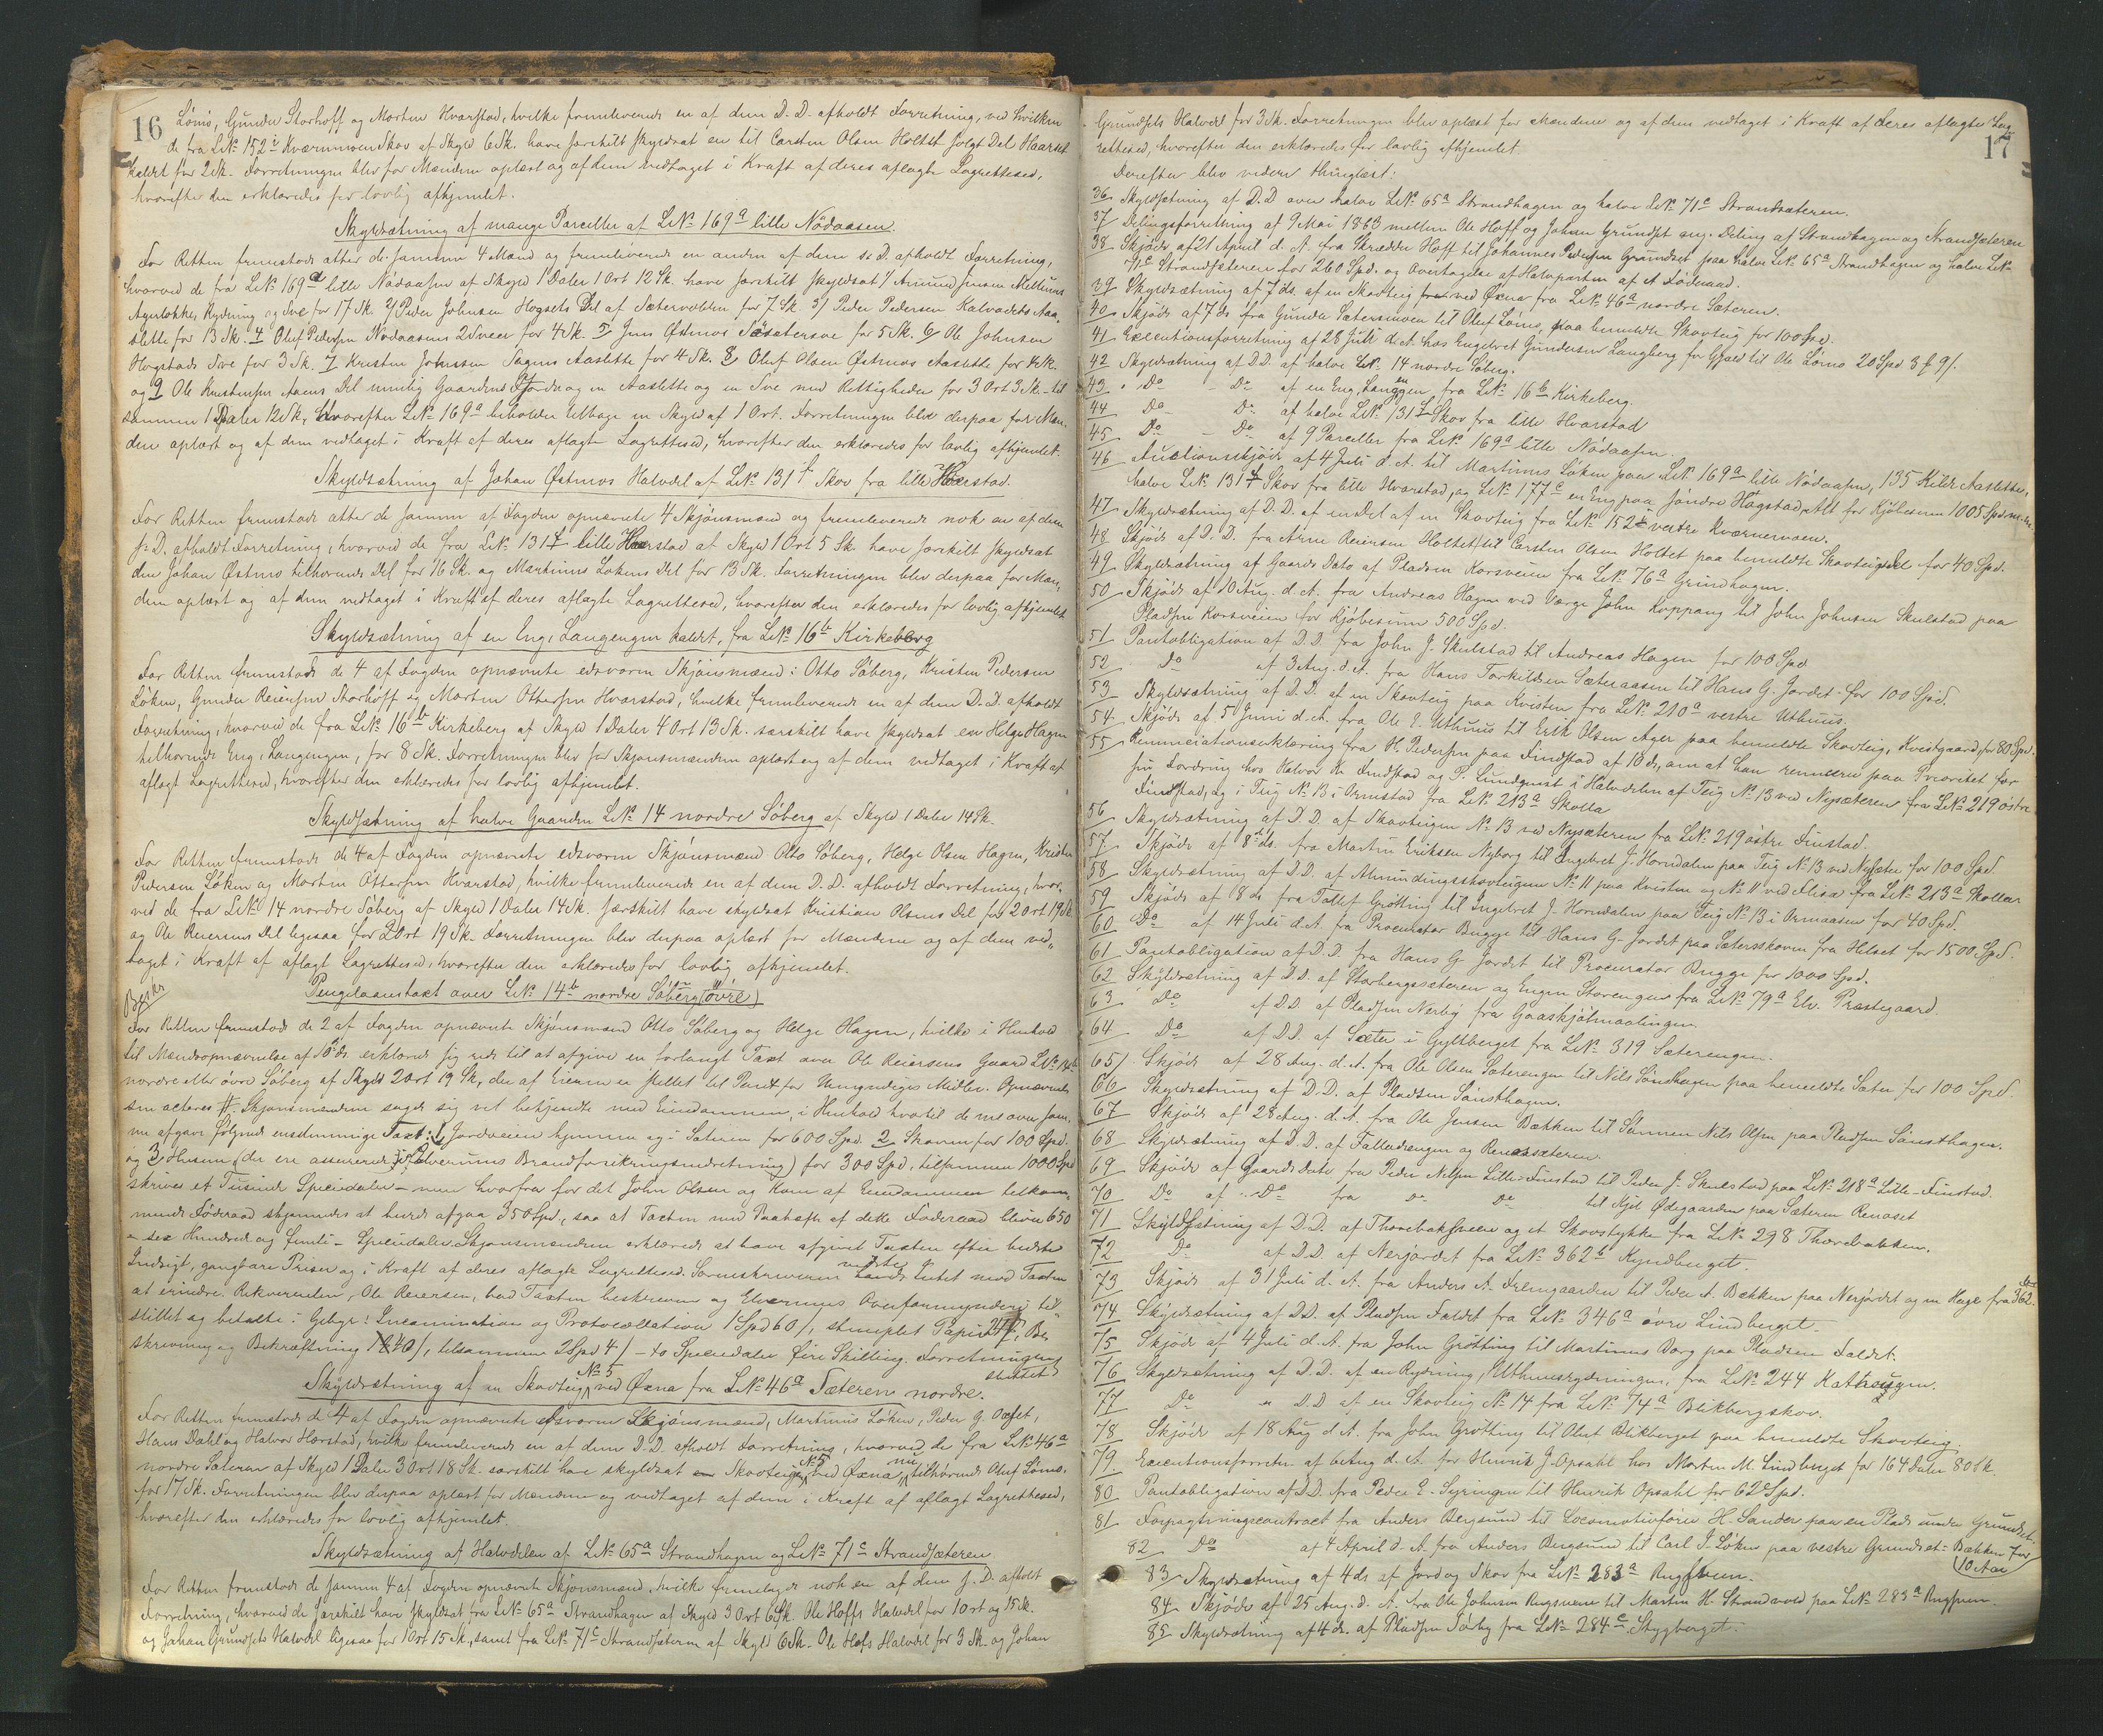 16
Lømo, Gunder Storhoff og Morten Hvarstad, hvilke fremleverede en af dem D. D. afholdt Forretning, ved hvilken
de fra LN: 152 i Kværnmoen Skov af Skyld 6 Sk. have særskilt skyldsat en til Carsten Olsen Holtet solgt Del Haarset
kaldet for 2 Sk. Forretningen blev for Mændene oplæst og af dem vedtaget i Kraft af deres aflagte Lagrettesed,
hvorefter den erklæredes for lovlig afhjemlet.
Skyldsætning af mange Parceller af LN: 169a lille Nødaasen.
For Retten fremstode atter de samme 4 Mænd og fremleverede en anden af dem s: D. afholdt Forretning,
hvorved de fra LN: 169a lille Nødaasen af Skyld 1 Daler 1 Ort 12 Sk. have særskilt skyldsat 1/ Amund Jensen
Agerløkke, Rydning og Sve for 17 Sk. 2/ Peder Johnsen Hogsets Del af Sætervolden for 7 Sk. 3/ Peder Pedersen Kalvodets Aa-
slette for 13 Sk. 4 Oluf Pedersen Nødaasens 2 Sveer for 4 Sk. 5 Jens Østmos Søsætersve for 5 Sk. 6 Ole Johnsen
Hogstads Sve for 3 Sk. 7 Kristen Johnsen Sagens Aaslette for 4 Sk. 8 Oluf Olsen Østmos Aaslette for 4 Sk.
og 9 Ole Kristensen Aaens Del nemlig Gaardens Jorde og en Aaslette og en Sve med Rettigheder for 3 Ort 3 Sk. til-
sammen 1 Daler 12 Sk, hvorefter LN: 169a beholder tilbage en Skyld af 1 Ort. Forretningen blev derpaa for Mæn-
dene oplæst og af dem vedtaget i Kraft af deres aflagte Lagrettesed, hvorefter den erklæredes for lovlig afhjemlet.
Skyldsætning af Johan Østmos Halvdel af LN: 131 f Skov fra lille Hvarstad.
For Retten fremstode atter de samme af Fogden opnævnte 4 Skjønsmænd og fremleverede nok en af dem
s: D. afholdt Forretning, hvorved de fra LN: 131 f lille Hvarstad af Skyld 1 Ort 5 Sk. have særskilt skyldsat
den Johan Østmo tilhørende Del for 16 Sk. og Martinus Løkens Del for 13 Sk. Forretningen blev derpaa for Mæn-
dene oplæst og af dem vedtaget i Kraft af deres aflagte Lagrettesed, hvorefter den erklæredes for lovlig afhjemlet
Skyldsætning af en Eng, Langengen kaldet, fra LN: 16b Kirkeberg
For Retten fremstode de 4 af Fogden opnævnte edsvorne Skjønsmænd: Otto Søberg, Kristen Pedersen
Løken, Gunder Reiersen Storhoff og Morten Ottersen Hvarstad, hvilke fremleverede en af dem D. D. afholdt
Forretning, hvorved de fra LN: 16b Kirkeberg af Skyld 1 Daler 4 Ort 13 Sk. særskilt have skyldsat en Helge Hagen
tilhørende Eng, Langengen, for 8 Sk. Forretningen blev for Skjønsmændene oplæst og af dem vedtaget i Kraft af
aflagt Lagrettesed, hvorefter den erklæredes for lovlig afhjemlet.
Skyldsætning af halve Gaarden LN: 14 nordre Søberg af Skyld 1 Daler 14 Sk.
For Retten fremstode de 4 af Fogden opnævnte edsvorne Skjønsmænd Otto Søberg, Helge Olsen Hagen, Kristen
Pedersen Løken og Morten Ottersen Hvarstad, hvilke fremleverede en af dem D. D. afholdt Forretning, hvor-
ved de fra LN: 14 nordre Søberg af Skyld 1 Daler 14 Sk. særskilt have skyldsat Kristian Olsens Del for 2 Ort 19 Sk
og Ole Reiersens Del ligesaa for 2 Ort 19 Sk. Forretningen blev derpaa oplæst for Mændene og af dem ved-
taget i Kraft af aflagt Lagrettesed, hvorefter den erklæredes for lovlig afhjemlet.
Beskr
Pengelaanstaxt over LN: 14b nordre Søberg (øvre)
For Retten fremstode de 2 af Fogden opnævnte Skjønsmænd Otto Søberg og Helge Hagen, hvilke i Henhold
til Mandsopnævnelse af 10 ds. erklærede sig rede til at afgive en forlangt Taxt over Ole Reiersens Gaard LN: 14b
nordre eller øvre Søberg af Skyld 2 Ort 19 Sk, der af Eieren er stillet til Pant for Umyndiges Midler. Opnævnelsen
acteres #. Skjønsmændene sagde sig vel bekjendte med Eiendommen, i Henhold hvortil de nævnte sam-
me afgave følgende eenstemmige Taxt: 1 Jordveien hjemme og i Sæteren for 600 Spd. 2 Skoven for 100 Spd.
og 3 Husene (der ere assurerede i Elverums Brandforsikringsindretning) for 300 Spd, tilsammen 1000 Spd
skriver et Tusinde Speciedaler – men hvorfra for det John Olsen og Kone af Eiendommen tilkom-
mende Føderaad skjønnedes at burde afgaa 350 Spd., saa at Taxten med Paahefte af dette Føderaad bliver 650
– sex Hundrede og femti – Speciedaler. Skjønsmændene erklærede at have afgivet Taxten efter bedste
Indsigt, gangbare Priser og i Kraft af deres aflagte Lagrettesed. Sorenskriveren vidste Intet mod Taxten
at erindre. Rekvirenten, Ole Reiersen, bad Taxten beskreven og Elverums Overformynderi til-
stillet og betalte i Gebyr: Incamination og Protocollation 1 Spd 60 /, stemplet Papir 24 /, Be-
skrivning og Bekræftning 40 /, tilsammen 2 Spd 4 / – to Speciedaler fire Skilling. Forretningen
sluttet
Skyldsætning af en Skovteig No 5 ved Øxna fra LN: 46a Sæteren nordre.
For Retten fremstode de 4 af Fogden opnævnte edsvorne Skjønsmænd, Martinus Løken, Peder G. Oxset,
Hans Dahl og Halvor Hærstad, hvilke fremleverede en af dem D. D. afholdt Forretning, hvorved de fra LN: 46a
nordre Sæteren af Skyld 1 Daler 3 Ort 18 Sk. særskilt have skyldsat Skovteigen No 5 ved Øxna nu tilhørende Oluf Lømo,
for 17 Sk. Forretningen blev derpaa oplæst for Mændene og vedtaget af dem i Kraft af aflagt Lagrettesed,
hvorefter den erklæredes for lovlig afhjemlet.
Skyldsætning af Halvdelen af LN: 65a Strandhagen og LN: 71c Strandsæteren
For Retten fremstode de samme 4 af Fogden opnævnte Skjønsmænd, hvilke fremlagde nok en af dem s. D. afholdt
Forretning, hvorved de særskilt have skyldsat fra LN: 65a Strandhagen af Skyld 3 Ort 6 Sk. Ole Hoffs Halvdel for 1 Ort og 15 Sk.
og Johan Grundsets Halvdel ligesaa for 1 Ort 15 Sk., samt fra LN: 71c Strandsæteren af Skyld 6 Sk. Ole Hofs Halvdel for 3 Sk og Johan
17
Grundsets Halvdel for 3 Sk. Forretningen blev oplæst for Mændene og af dem vedtaget i Kraft af deres aflagte Lag-
rettesed, hvorefter den erklæredes for lovlig afhjemlet.
Derefter blev videre thinglæst:
36 Skyldsætning af D. D over halve LN: 65a Strandhagen og halve LN: 71c Strandsæteren.
37 Delingsforretning af 9 Mai 1863 mellem Ole Hoff og Johan Grundset ang. Deling af Strandhagen og Strandsæteren
38 Skjøde af 21 April d. A. fra Skrædder Hoff til Johannes Pedersen Grundset paa halve LN: 65a Strandhagen og halve LN:
71c Strandsæteren for 260 Spd. og Overtagelse af Halvparten af et Føderaad.
39 Skyldsætning af 7 ds. af en Skovteig ved Øxna fra LN: 46a nordre Sæteren.
40 Skjøde af 7 ds fra Gunder Sætersmoen til Oluf Lømo, paa bemeldte Skovteig for 100 Spd.
41 Executionsforretning af 28 Juli d. A. hos Engebret Gundersen Langberg for Gjæld til Ole Lømo 20 Spd 3 ß 9/.
42 Skyldsætning af D. D. af halve LN: 14 nordre Søberg.
43 Do – Do af en Eng, Langengen fra LN: 16b Kirkeberg.
44 Do – Do af halve LN: 131 f Skov fra lille Hvarstad
45 Do – Do af 9 Parceller fra LN: 169a lille Nødaasen.
46 Auctionsskjøde af 4 Juli d. A. til Martinus Løken paa LN: 169a lille Nødaasen, 135 Aaslette,
halve LN: 131 f Skov fra lille Hvarstad, og LN: 177c en Eng paa søndre Hagstad, Alt for Kjøbesum 1005 Spd m. m.
47 Skyldsætning af D. D. af en Del af en Skovteig fra LN: 152 i vestre Kværnmoen.
48 Skjøde af D. D. fra Arne Reiersen Holtet til Carsten Olsen Holtet paa bemeldte Skovteigdel for 40 Spd.
49 Skyldsætning af Gaards Dato af Pladsen Korsveien fra LN: 76a Grundhagen.
50 Skjøde af 10 Aug. d. A. fra Andreas Hagen ved Værge John Koppang til John Johnsen Skulstad paa
Pladsen Korsveien for Kjøbesum 500 Spd.
51 Pantobligation af D. D fra John J. Skulstad til Andreas Hagen for 100 Spd
52 Do af 3 Aug. d. A. fra Hans Torkildsen Sæteraasen til Hans G. Jordet for 100 Spd.
53 Skyldsætning af D. D. af en Skovteig paa Kvisten fra LN: 210a vestre Uthuus.
54 Skjøde af 5 Juni d. A. fra Ole E. Uthuus til Erik Olsen Ager paa bemeldte Skovteig, Kvistgaard, for 80 Spd.
55 Renunciationserklæring fra H. Pedersen paa Findstad af 10 ds, om at han renuncerer paa Prioritet for
sin Fordring hos Halvor Findstad og P. Lundquist i Halvdelen af Teig No 13 ved Nysæteren fra LN: 219 østre
Findstad, og i Teig No 13 i Ormstad fra LN: 213a Skolla
56 Skyldsætning af D. D. af Skovteigen No 13 ved Nysæteren fra LN: 219 østre Finstad.
57 Skjøde af 8 ds. fra Martin Eriksen Nyborg til Engebret J. Horndalen paa Teig No 13 ved Nysæter for 100 Spd.
58 Skyldsætning af D. D. af Almindingsskovteigen No 11 paa Kvisten og No 11 ved Flisa fra LN: 213a Skollen
59 Skjøde af 8 ds fra Tollef Grøtting til Engebret J. Horndalen paa Teig No 13 i Ormaasen for 40 Spd.
60 Do af 14 Juli d. A fra Procurator Bugge til Hans G. Jordet paa Sætersskoven fra Helset for 1500 Spd.
61 Pantobligation af D. D. fra Hans G. Jordet til Procurator Bugge for 1000 Spd.
62 Skyldsætning af D. D. af Storbergssæteren og Engen Storengen fra LN: 79a Elv. Præstegaard
63 Do af D. D. af Pladsen Nerby fra Gaaskjølmaalingen.
64 Do af D. D. af Sæter i Gyltberget fra LN: 319 Sæterengen.
65/. Skjøde af 28 Aug. d. A. fra Ole Olsen Sæterengen til Nils Sønsthagen paa bemeldte Sæter for 100 Spd.
66 Skyldsætning af D. D. af Pladsen Sønsthagen.
67 Skjøde af 28 Aug. d. A. fra Ole Jensen Bækken til Sønnen Nils Olsen paa Pladsen Sønsthagen.
68 Skyldsætning af D. D. af Falladengen og Renaasæteren.
69 Skjøde af Gaards dato fra Peder Nilsen Lille-Finstad til Peder J. Skulstad paa LN: 218a Lille-Finstad.
70 Do af Do fra Do Do til Kjel Ødegaarden paa Sæteren Renaset
71 Skyldsætning af D. D. af Thorebaksveen og et Skovstykke fra LN: 298 Thorebakken.
72 Do af D. D. af Nerjordet fra LN: 362b Kyndberget.
73 Skjøde af 31 Juli d. A. fra Anders A. Fremgaarden til Peder A. Bækken paa Nerjordet og en Hage fra LN: 362.
74 Skyldsætning af D. D. af Pladsen Faldet fra LN: 346a øvre Lindberget.
75 Skjøde af 4 Juli d. A. fra John Grøtting til Martinus Borg paa Pladsen Faldet.
76 Skyldsætning af D. D. af en Rydning, Uthuusrydningen, fra LN: 244
77 Do – D. D af en Skovteig No 14 fra LN: 74a Blikbergskov.
78 Skjøde af 18 Aug d. A. fra John Grøtting til Oluf Blikberget paa bemeldte Skovteig
79. Executionsforretn. af 6 Aug d. A. for Henrik J. Opsahl hos Morten M. Lindberget for 164 Daler 80 Sk.
80 Pantobligation af D. D. fra Peder E. Syringen til Henrik Opsahl for 62 Spd.
81 Forpagtningscontract fra Anders Bergsund til Locomotivfører H. Sander paa en Plads under Grundset.
82 Do af 4 April d. A. fra Anders Bergsund til Carl J. Løken paa vestre Grundset-Bækken for
10 Aar
83 Skyldsætning af 4 ds af Jord og Skov fra LN: 283a Rugsveen.
84 Skjøde af 25 Aug. d. A. fra Ole Johnsen Rugsveen til Martin H. Strandvold paa LN: 283a Rugsveen.
85 Skyldsætning af 4 ds. af Pladsen Søby fra LN: 284c Stygberget.